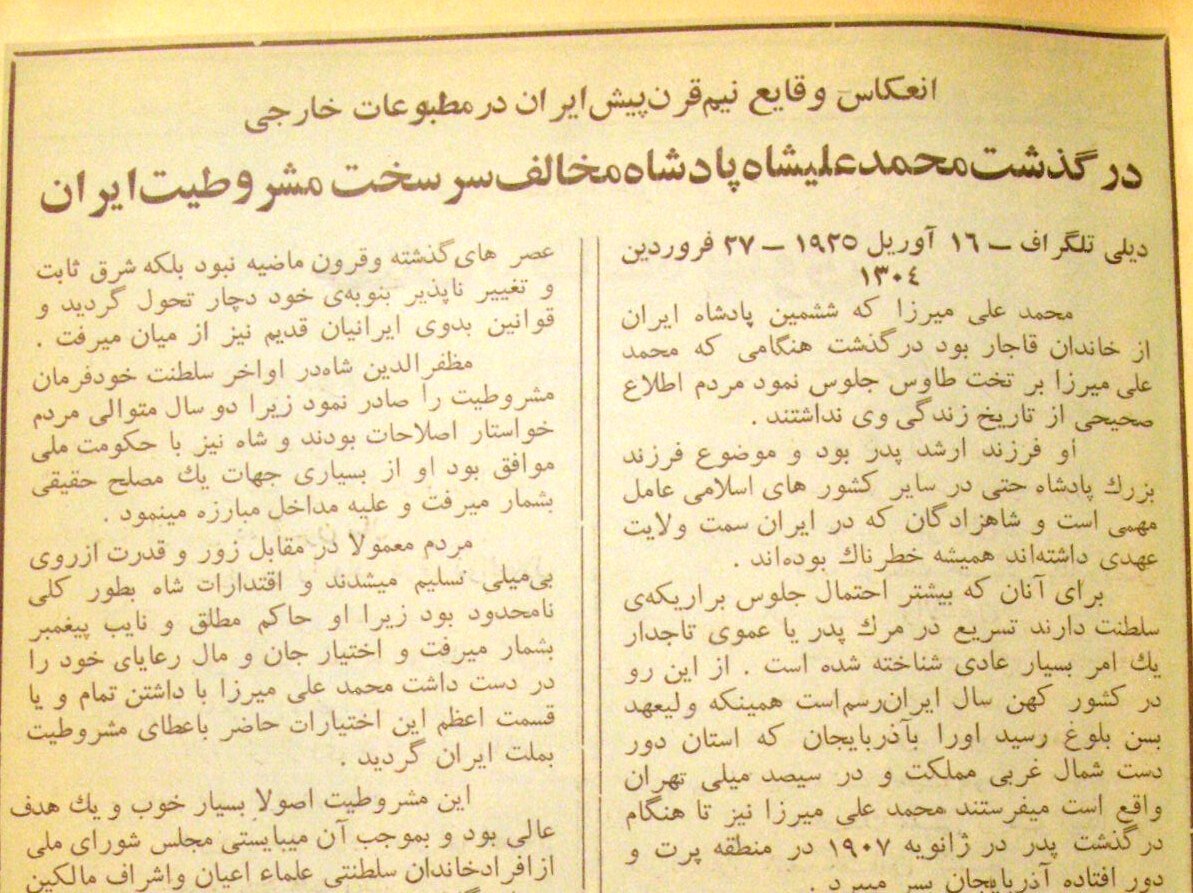 انعکاس وقایع نیم‌قرن پیش ایران در مطبوعات خارجی
درگذشت محمدعلیشاه پادشاه مخالف سرسخت مشروطیت ایران
دیلی تلگراف – ۱٦ آوریل ۱۹۲۵ – ۲۷ فروردین
۱۳۰٤
محمد علی میرزا که ششمین پادشاه ایران
از خاندان قاجار بود درگذشت هنگامی که محمد
علی میرزا بر تخت طاوس جلوس نمود مردم اطلاع
صحیحی از تاریخ زندگی وی نداشتند .
او فرزند ارشد پدر بود و موضوع فرزند
بزرك پادشاه حتی در سایر کشور های اسلامی عامل
مهمی است و شاهزادگان که در ایران سمت ولایت
عهدی داشته‌اند همیشه خطرناك بوده‌اند .
برای آنان که بیشتر احتمال جلوس براریکه‌ی
سلطنت دارند تسریع در مرك پدر یا عموی تاجدار
یك امر بسیار عادی شناخته شده است . از این رو
در کشور کهن سال ایران‌رسم‌است همینکه ولیعهد
بسن بلوغ رسید اورا بآذربایجان که استان دور
دست شمال غربی مملکت و در سیصد میلی تهران
واقع است میفرستند محمد علی میرزا نیز تا هنگام
درگذشت پدر در ژانویه ۱۹۰۷ در منطقه پرت و
دور افتاده آذربایجان بسر میبرد .
عصر های گذشته وقرون ماضیه نبود بلکه شرق ثابت
و تغییر ناپذیر بنوبه‌ی خود دچار تحول گردید و
قوانین بدوی ایرانیان قدیم نیز از میان میرفت .
مظفرالدین شاه‌در اواخر سلطنت خودفرمان
مشروطیت را صادر نمود زیرا دو سال متوالی مردم
خواستار اصلاحات بودند و شاه نیز با حکومت ملی
موافق بود او از بسیاری جهات یك مصلح حقیقی
بشمار میرفت و علیه مداخل مبارزه مینمود .
مردم معمولا در مقابل زور و قدرت ازروی
بی‌میلی تسلیم میشدند و اقتدارات شاه بطور کلی
نامحدود بود زیرا او حاکم مطلق و نایب پیغمبر
بشمار میرفت و اختیار جان و مال رعایای خود را
در دست داشت محمد علی میرزا با داشتن تمام و یا
قسمت اعظم این اختیارات حاضر باعطای مشروطیت
بملت ایران گردید .
این مشروطیت اصولا بسیار خوب و یك هدف
عالی بود و بموجب آن میبایستی مجلس شورای ملی
ازافرادخاندان سلطنتی علماء اعیان واشراف مالکین